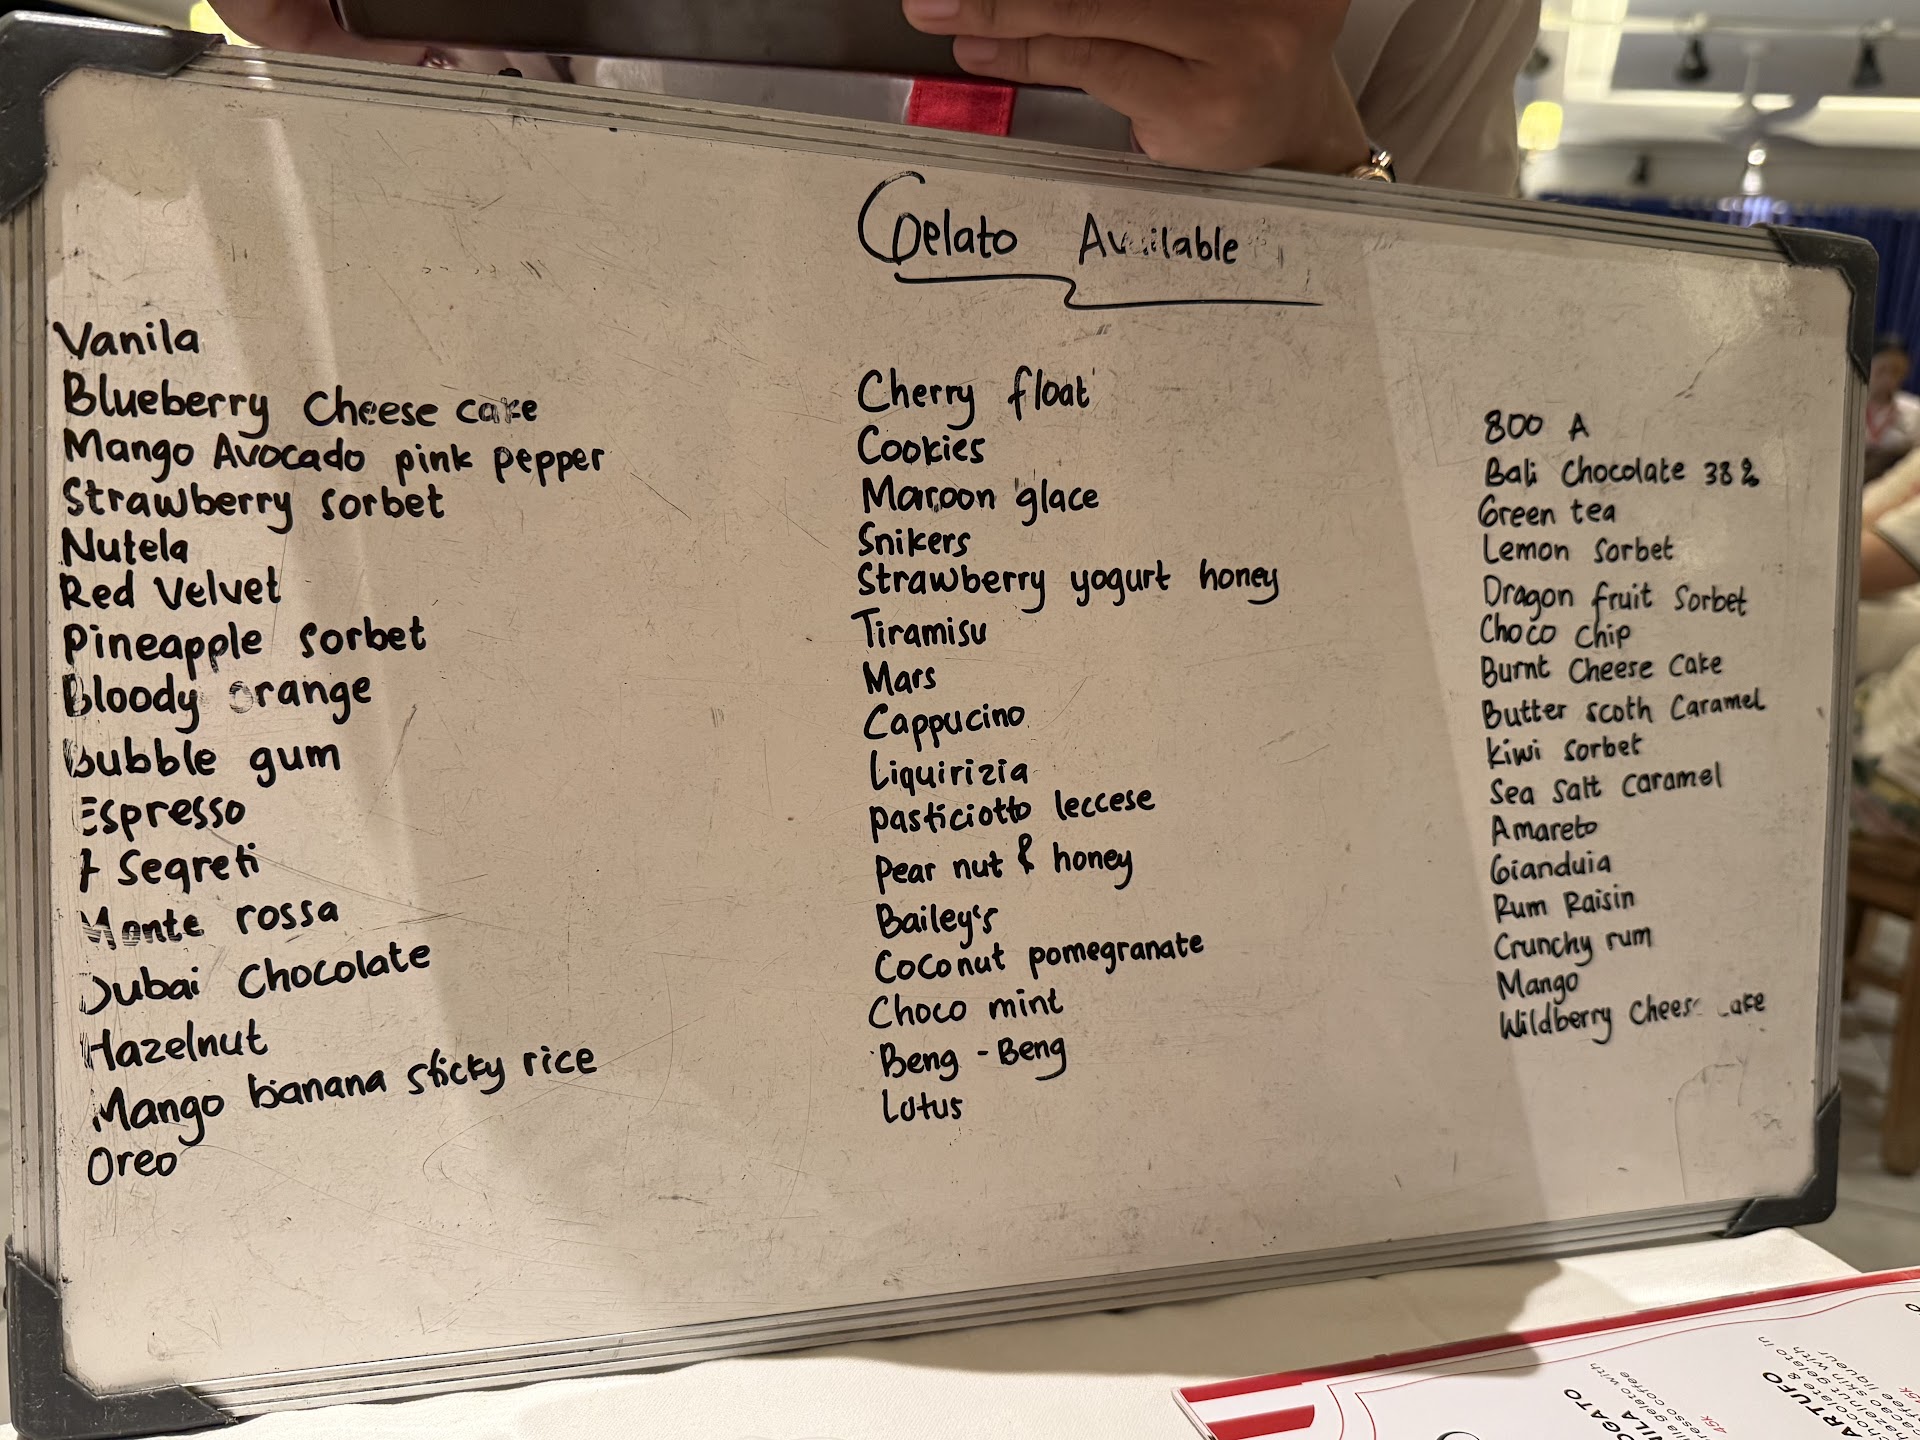 Gelato Available
Vanila
Blueberry Cheese cake
Mango Avocado pink pepper
Strawberry sorbet
Nutela
Red Velvet
Pineapple sorbet
Bloody orange
Bubble gum
Espresso
7 Segreti
Monte rossa
Dubai Chocolate
Hazelnut
Mango banana sticky rice
Oreo
Cherry float
Cookies
Maroon glace
Snikers
Strawberry yogurt honey
Tiramisu
Mars
Cappucino
Liquirizia
Pasticiotto leccese
Pear nut & honey
Bailey's
Coconut pomegranate
Choco mint
Beng - Beng
Lotus
800 A
Bali Chocolate 38%
Green tea
Lemon Sorbet
Dragon fruit Sorbet
Choco Chip
Burnt Cheese Cake
Butter scoth Caramel
Kiwi sorbet
Sea Salt Caramel
Amareto
Gianduia
Rum Raisin
Crunchy rum
Mango
Wildberry Cheese cake
ARTUFO